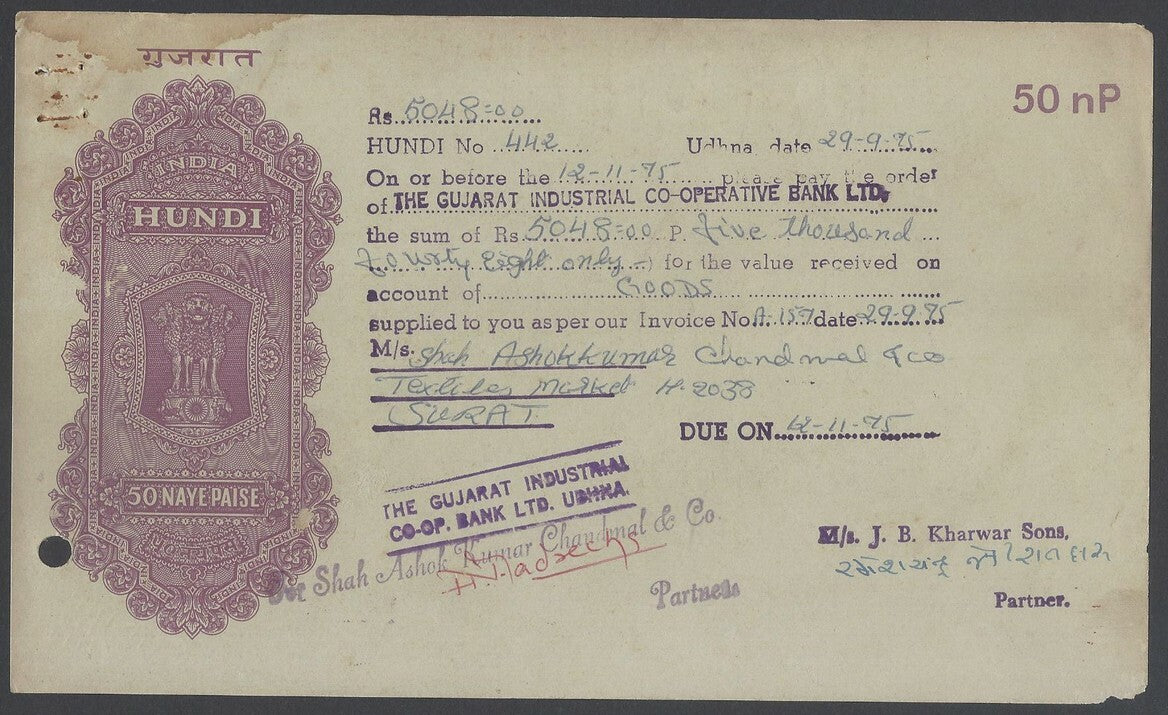 गुजरात
50 nP
INDIA
HUNDI
50 NAYE PAISE
Rs. 5048=00
HUNDI No 442 Udhna, date 29-9-75
On or before the 12-11-75 please pay the order
of THE GUJARAT INDUSTRIAL CO-OPERATIVE BANK LTD,
the sum of Rs. 5048=00 P. five thousand
fourty Eight only -) for the value received on
account of GOODS
supplied to you as per our Invoice No. A-157 date 29.9.75
M/s. Shah Ashokkumar Chandmal & co
Textiles Market H-2038
SURAT
DUE ON 12-11-75
THE GUJARAT INDUSTRIAL
CO-OP. BANK LTD. UDHNA.
For Shah Ashok Kumar Chandmal & Co.
Partners
M/s. J. B. Kharwar Sons,
Partner.